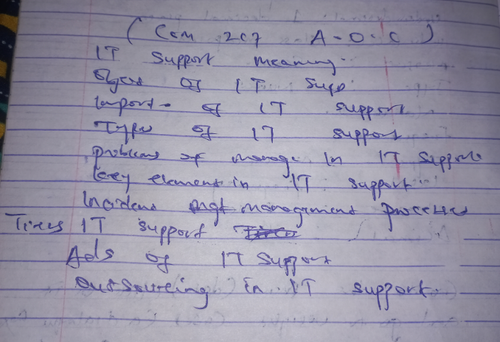 (Com 207 A-O-C)
IT Support meaning.
Objects of IT Supp
import- of IT support
Types of IT support
problems of manage in IT Support
key element in IT support.
Incident mgt management processes
Tires IT support
Ads of IT Support
outsourcing in IT support.